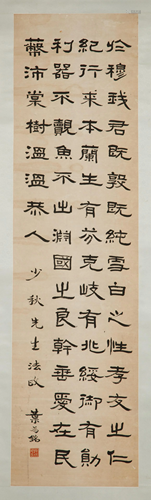 於穆我君既敦既純雪白之性孝友之仁
紀行來本蘭生有芬克岐有兆綏御有勛
利器不覿魚不出淵國之良幹垂愛在民
蔽沛棠樹溫溫恭人
少秋先生法政
葉